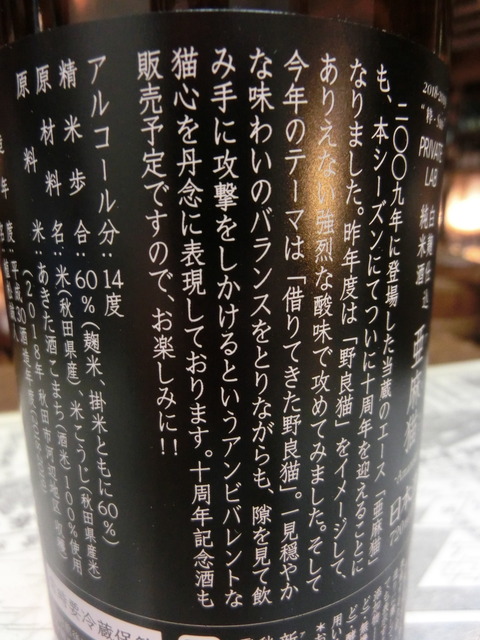 PRIVATE
LAB
白麹仕込
純米酒
亜麻猫
日本
二〇〇九年に登場した当蔵のエース「亜麻猫」
も、本シーズンにてついに十周年を迎えることに
なりました。昨年度は「野良猫」をイメージして、
ありえない強烈な酸味で攻めてみました。そして
今年のテーマは「借りてきた野良猫」。一見穏やか
な味わいのバランスをとりながらも、隙を見て飲
み手に攻撃をしかけるというアンビバレントな
猫心を丹念に表現しております。十周年記念酒も
販売予定ですので、お楽しみに!!
アルコール分:14度
精米歩合:60%(麹米、掛米ともに60%)
原材料名:米(秋田県産)米こうじ(秋田県産米)
原料米:あきた酒こまち(酒米)100%使用
(2018年秋田市河辺地区収穫)
平成30酒造年度
要冷蔵保